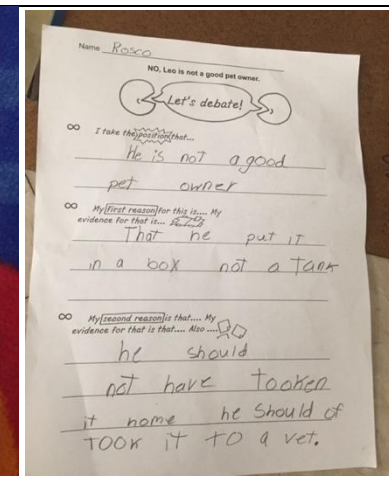 Name Rosco
NO, Leo is not a good pet owner.
Let's debate!
I take the position that...
He is not a good
pet owner
My first reason for this is.... My
evidence for that is...
That he put it
in a box not a Tank
My second reason is that.... My
evidence for that is that.... Also ....
he should
not have Tooken
it home he Should of
TOOK iT TO a vet.